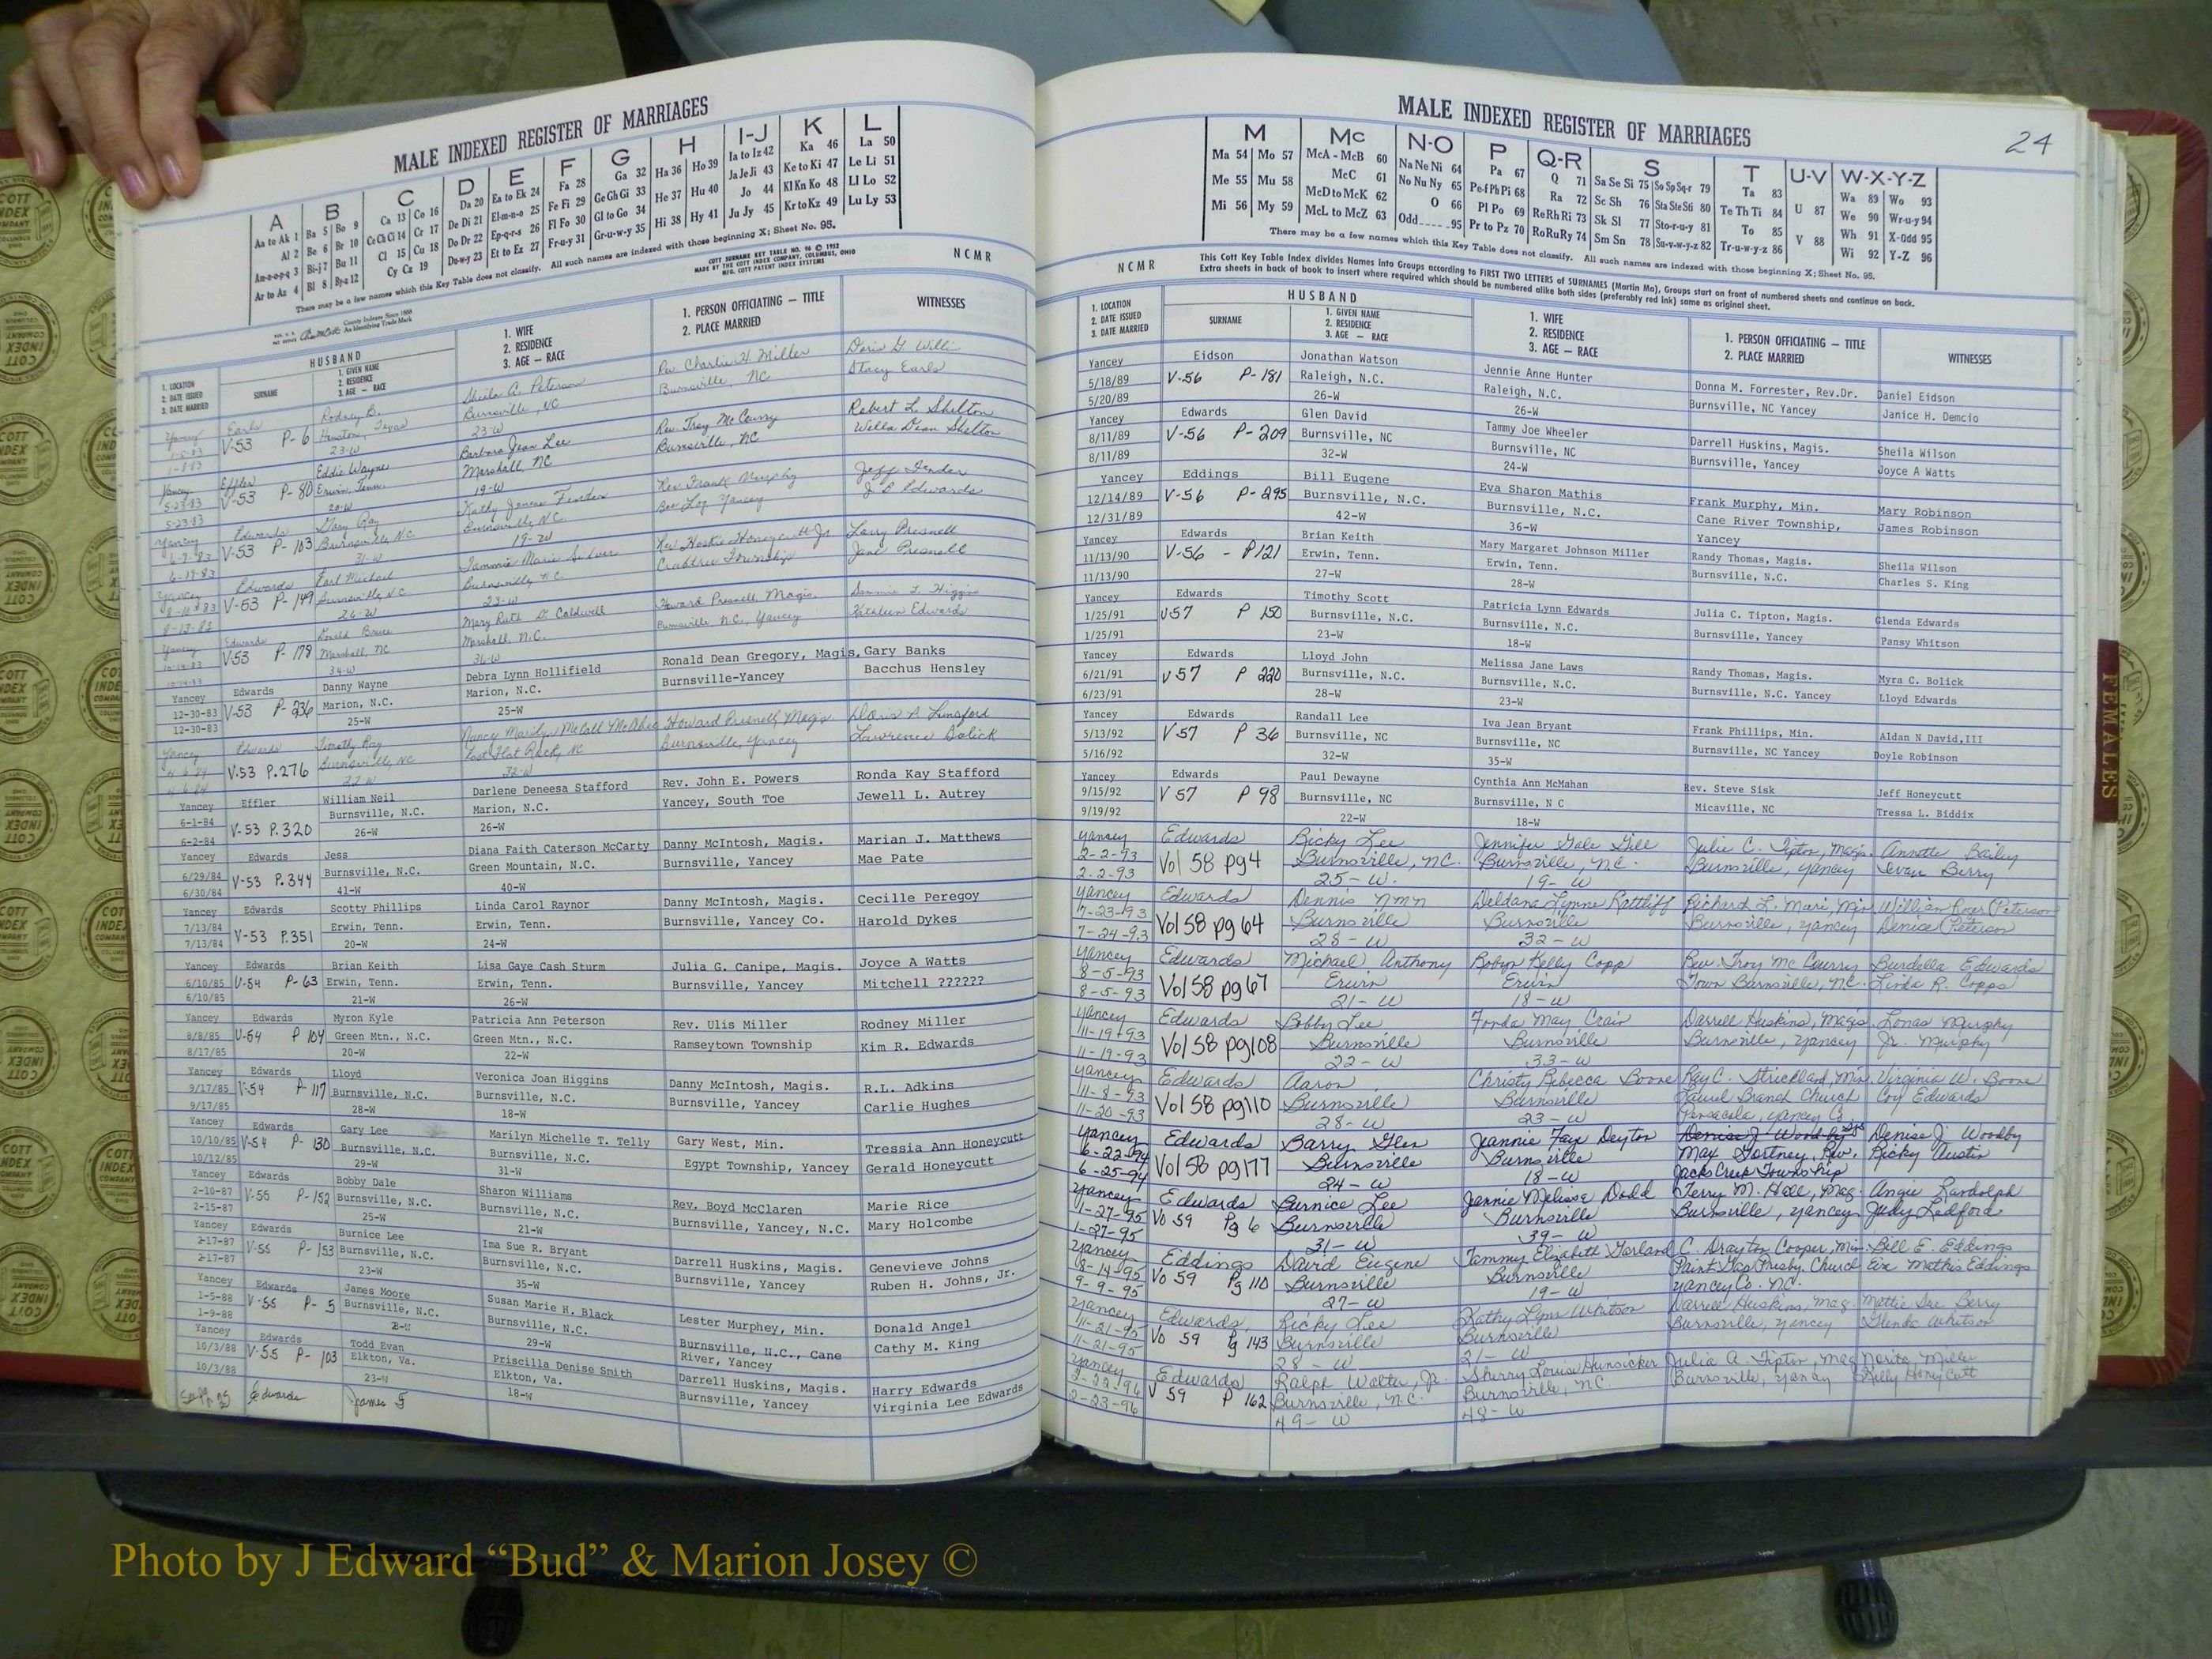 MALE INDEXED REGISTER OF MARRIAGES
A B C D E F G H I-J K L
Aa to Ak 1 Ba 5 Bo 9 Ca 13 Co 16 Da 20 Ea to Ek 24 Fa 28 Ga 32 Ha 36 Ho 39 Ia to Iz 42 Ka 46 La 50
Al 2 Be 6 Br 10 Ce Ch Ci 14 Cr 17 De Di 21 El-m-n-o 25 Fe Fi 29 Ge Gh Gi 33 He 37 Hu 40 Ja Je Ji 43 Ke to Ki 47 Le Li 51
Am-n-o-p-q 3 Bi-j 7 Bu 11 Cl 15 Cu 18 Do Dr 22 Ep-q-r-s 26 Fl Fo 30 Gl to Go 34 Hi 38 Hy 41 Jo 44 Kl Kn Ko 48 Ll Lo 52
Ar to Az 4 Bl 8 By-z 12 Cy Cz 19 Du-w-y 23 Et to Ez 27 Fr-u-y 31 Gr-u-w-y 35 Ju Jy 45 Kr to Kz 49 Lu Ly 53
There may be a few names which this Key Table does not classify. All such names are indexed with those beginning X; Sheet No. 95.
COTT SURNAME KEY TABLE NO. 96 © 1952
MADE BY THE COTT INDEX COMPANY, COLUMBUS, OHIO
MFG. COTT PATENT INDEX SYSTEMS
NCMR
County Indexes Since 1888
An Identifying Trade Mark
1. LOCATION
2. DATE ISSUED
3. DATE MARRIED
HUSBAND
SURNAME
1. GIVEN NAME
2. RESIDENCE
3. AGE — RACE
1. WIFE
2. RESIDENCE
3. AGE — RACE
1. PERSON OFFICIATING — TITLE
2. PLACE MARRIED
WITNESSES
Yancey Earls Rodney B. Sheila A. Peterson Rev. Charlie H. Miller Doris G. Willi
V-53 P-6 Houston, Texas Burnsville, NC Burnsville, NC Stacy Earls
1-8-83 23-W 23-W
Yancey Effler Eddie Wayne Barbara Jean Lee Rev. Troy McCurry Robert L. Shelton
5-23-83 V-53 P-80 Erwin, Tenn. Marshall, NC Burnsville, NC Wella Dean Shelton
5-23-83 20-W 19-W
Yancey Edwards Gary Ray Kathy Fender Rev. Frank Murphy Jeff Fender
6-9-83 V-53 P-103 Burnsville, N.C. Burnsville, N.C. Yancey Edwards
6-19-83 31-W 19-W
Yancey Edwards Earl Michael Tammie Marie Rev. Honeycutt Jr Larry Presnell
V-53 P-149 Burnsville, N.C. Burnsville, N.C. Crabtree Township Jane Presnell
26-W 23-W
Yancey Edwards Donald Bruce Mary Ruth D. Caldwell Howard Presnell, Magis. Higgins
V-53 P-179 Marshall, NC Marshall, N.C. Burnsville, N.C., Yancey Kathleen Edwards
34-W 36-W
Yancey Edwards Danny Wayne Debra Lynn Hollifield Ronald Dean Gregory, Magis. Gary Banks
12-30-83 V-53 P-236 Marion, N.C. Marion, N.C. Burnsville-Yancey Bacchus Hensley
12-30-83 25-W 25-W
Yancey Edwards Timothy Ray Nancy Marilyn McCall McAbee Howard Presnell, Magis. Doris A Lunsford
V-53 P.276 Burnsville, NC East Flat Rock, NC Burnsville, Yancey Lawrence Bolick
22-W 32-W
Yancey Effler William Neil Darlene Deneesa Stafford Rev. John E. Powers Ronda Kay Stafford
6-1-84 V-53 P.320 Burnsville, N.C. Marion, N.C. Yancey, South Toe Jewell L. Autrey
6-2-84 26-W 26-W
Yancey Edwards Jess Diana Faith Caterson McCarty Danny McIntosh, Magis. Marian J. Matthews
6/29/84 V-53 P.344 Burnsville, N.C. Green Mountain, N.C. Burnsville, Yancey Mae Pate
6/30/84 41-W 40-W
Yancey Edwards Scotty Phillips Linda Carol Raynor Danny McIntosh, Magis. Cecille Peregoy
7/13/84 V-53 P.351 Erwin, Tenn. Erwin, Tenn. Burnsville, Yancey Co. Harold Dykes
7/13/84 20-W 24-W
Yancey Edwards Brian Keith Lisa Gaye Cash Sturm Julia G. Canipe, Magis. Joyce A Watts
6/10/85 V-54 P-63 Erwin, Tenn. Erwin, Tenn. Burnsville, Yancey Mitchell ??????
6/10/85 21-W 26-W
Yancey Edwards Myron Kyle Patricia Ann Peterson Rev. Ulis Miller Rodney Miller
8/8/85 V-54 P 104 Green Mtn., N.C. Green Mtn., N.C. Ramseytown Township Kim R. Edwards
8/17/85 20-W 22-W
Yancey Edwards Lloyd Veronica Joan Higgins Danny McIntosh, Magis. R.L. Adkins
9/17/85 V-54 P-117 Burnsville, N.C. Burnsville, N.C. Burnsville, Yancey Carlie Hughes
9/17/85 28-W 18-W
Yancey Edwards Gary Lee Marilyn Michelle T. Telly Gary West, Min. Tressia Ann Honeycutt
10/10/85 V-54 P-130 Burnsville, N.C. Burnsville, N.C. Egypt Township, Yancey Gerald Honeycutt
10/12/85 29-W 31-W
Yancey Edwards Bobby Dale Sharon Williams Rev. Boyd McClaren Marie Rice
2-10-87 V-55 P-152 Burnsville, N.C. Burnsville, N.C. Burnsville, Yancey, N.C. Mary Holcombe
2-15-87 25-W 21-W
Yancey Edwards Burnice Lee Ima Sue R. Bryant Darrell Huskins, Magis. Genevieve Johns
2-17-87 V-55 P-153 Burnsville, N.C. Burnsville, N.C. Burnsville, Yancey Ruben H. Johns, Jr.
2-17-87 23-W 35-W
Yancey Edwards James Moore Susan Marie H. Black Lester Murphey, Min. Donald Angel
1-5-88 V-55 P-5 Burnsville, N.C. Burnsville, N.C. Burnsville, N.C., Cane Cathy M. King
1-9-88 29-W River, Yancey
Yancey Edwards Todd Evan Priscilla Denise Smith Darrell Huskins, Magis. Harry Edwards
10/3/88 V-55 P-103 Elkton, Va. Elkton, Va. Burnsville, Yancey Virginia Lee Edwards
10/3/88 23-W 18-W
Edwards James F
MALE INDEXED REGISTER OF MARRIAGES
24
M Mc N-O P Q-R S T U-V W-X-Y-Z
Ma 54 Mo 57 McA - McB 60 Na Ne Ni 64 Pa 67 Q 71 Sa Se Si 75 So Sp Sq-r 79 Ta 83 Wa 89 Wo 93
Me 55 Mu 58 McC 61 No Nu Ny 65 Pe-f Ph Pi 68 Ra 72 Sc Sh 76 Sta Ste Sti 80 Te Th Ti 84 U 87 We 90 Wr-u-y 94
Mi 56 My 59 McD to McK 62 O 66 Pl Po 69 Re Rh Ri 73 Sk Sl 77 Sto-r-u-y 81 To 85 V 88 Wh 91 X-Odd 95
McL to McZ 63 Odd 95 Pr to Pz 70 Ro Ru Ry 74 Sm Sn 78 Su-v-w-y-z 82 Tr-u-w-y-z 86 Wi 92 Y-Z 96
There may be a few names which this Key Table does not classify. All such names are indexed with those beginning X; Sheet No. 95.
NCMR
This Cott Key Table Index divides Names into Groups according to FIRST TWO LETTERS of SURNAMES (Martin Ma). Groups start on front of numbered sheets and continue on back.
Extra sheets in back of book to insert where required which should be numbered alike both sides (preferably red ink) same as original sheet.
1. LOCATION
2. DATE ISSUED
3. DATE MARRIED
HUSBAND
SURNAME
1. GIVEN NAME
2. RESIDENCE
3. AGE — RACE
1. WIFE
2. RESIDENCE
3. AGE — RACE
1. PERSON OFFICIATING — TITLE
2. PLACE MARRIED
WITNESSES
Yancey Eidson Jonathan Watson Jennie Anne Hunter Donna M. Forrester, Rev.Dr. Daniel Eidson
5/18/89 V-56 P-181 Raleigh, N.C. Raleigh, N.C. Burnsville, NC Yancey Janice H. Demcio
5/20/89 26-W 26-W
Yancey Edwards Glen David Tammy Joe Wheeler Darrell Huskins, Magis. Sheila Wilson
8/11/89 V-56 P-209 Burnsville, NC Burnsville, NC Burnsville, Yancey Joyce A Watts
8/11/89 32-W 24-W
Yancey Eddings Bill Eugene Eva Sharon Mathis Frank Murphy, Min. Mary Robinson
12/14/89 V-56 P-295 Burnsville, N.C. Burnsville, N.C. Cane River Township, James Robinson
12/31/89 42-W 36-W Yancey
Yancey Edwards Brian Keith Mary Margaret Johnson Miller Randy Thomas, Magis. Sheila Wilson
11/13/90 V-56 - P121 Erwin, Tenn. Erwin, Tenn. Burnsville, N.C. Charles S. King
11/13/90 27-W 28-W
Yancey Edwards Timothy Scott Patricia Lynn Edwards Julia C. Tipton, Magis. Glenda Edwards
1/25/91 V57 P 150 Burnsville, N.C. Burnsville, N.C. Burnsville, Yancey Pansy Whitson
1/25/91 23-W 18-W
Yancey Edwards Lloyd John Melissa Jane Laws Randy Thomas, Magis. Myra C. Bolick
6/21/91 V57 P 220 Burnsville, N.C. Burnsville, N.C. Burnsville, N.C. Yancey Lloyd Edwards
6/23/91 28-W 23-W
Yancey Edwards Randall Lee Iva Jean Bryant Frank Phillips, Min. Aldan N David,III
5/13/92 V57 P 36 Burnsville, NC Burnsville, NC Burnsville, NC Yancey Doyle Robinson
5/16/92 32-W 35-W
Yancey Edwards Paul Dewayne Cynthia Ann McMahan Rev. Steve Sisk Jeff Honeycutt
9/15/92 V 57 P 98 Burnsville, NC Burnsville, N C Micaville, NC Tressa L. Biddix
9/19/92 22-W 18-W
Yancey Edwards Ricky Lee Jennifer Gale Gill Julie C. Tipton, Magis. Annette Bailey
2-2-93 Vol 58 pg4 Burnsville, N.C. Burnsville, N.C. Burnsville, Yancey Berry
2-2-93 25-W. 19-W
Yancey Edwards Dennis nmn Deldana Lynne Rattliff Richard L. Mari, Min William Peterson
7-23-93 Vol 58 pg 64 Burnsville Burnsville Burnsville, Yancey Denise Peterson
7-24-93 28-W 32-W
Yancey Edwards Michael Anthony Robyn Kelly Copp Rev. Troy McCurry Burdella Edwards
8-5-93 Vol 58 pg 67 Erwin Erwin Town Burnsville, N.C. Linda R. Copps
8-5-93 21-W 18-W
Yancey Edwards Bobby Lee Fonda May Crain Darrell Huskins, Magis. Lonas Murphy
11-19-93 Vol 58 pg108 Burnsville Burnsville Burnsville, Yancey Jr. Murphy
11-19-93 22-W 33-W
Yancey Edwards Aaron Christy Rebecca Boone Ray C. Strickland, Min. Virginia W. Boone
11-8-93 Vol 58 pg110 Burnsville Burnsville Laurel Branch Church Coy Edwards
11-20-93 28-W 23-W Pensacola, Yancey Co.
Yancey Edwards Barry Glen Jeannie Faye Deyton Denise J Woodby Denise J Woodby
6-22-94 Vol 58 pg177 Burnsville Burnsville Max Gortney, Rev. Ricky Austin
6-25-94 24-W 18-W Jacks Creek Township
Yancey Edwards Burnice Lee Jannie Melissa Dodd Terry M. Hall, Mag. Angie Randolph
1-27-95 Vo 59 Pg 6 Burnsville Burnsville Burnsville, Yancey Judy Ledford
1-27-95 31-W 39-W
Yancey Eddings David Eugene Tammy Elizabeth Garland C. Drayton Cooper, Min. Bill E. Eddings
8-14-95 Vo 59 Pg 110 Burnsville Burnsville Paint Gap Presby. Church Eva Mathis Eddings
9-9-95 27-W 19-W Yancey Co. NC.
Yancey Edwards Ricky Lee Kathy Lynn Whitson Darrell Huskins, Mag. Mattie Sue Berry
11-21-95 Vo 59 Pg 143 Burnsville Burnsville Burnsville, Yancey Glenda Whitson
11-21-95 28-W 21-W
Yancey Edwards Ralph Walter, Jr. Sherry Louise Hunsicker Julia A. Tipton, Mag Norita Miller
2-22-96 V 59 P 162 Burnsville, N.C. Burnsville, NC. Burnsville, Yancey Honeycutt
2-23-96 49-W 48-W
FEMALES
Photo by J Edward “Bud” & Marion Josey ©